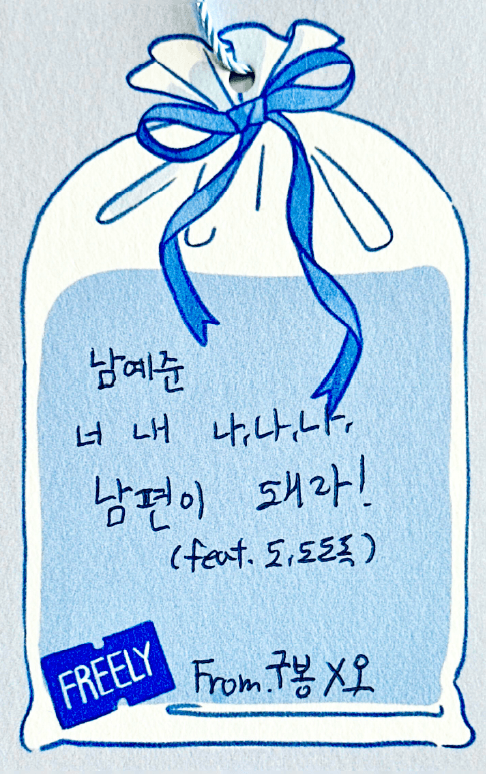 남예준
너 내 나,나,나,
남편이 돼라!
(feat. 도,도도독)
FREELY
From.구봉X오